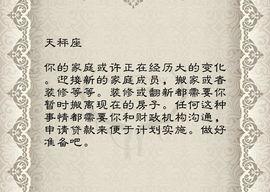 天秤座
你的家庭或许正在经历大的变化
。迎接新的家庭成员，搬家或者
装修等等。装修或翻新都需要你
暂时搬离现在的房子。任何这种
事情都需要你和财政机构沟通，
申请贷款来便于计划实施。做好
准备吧。